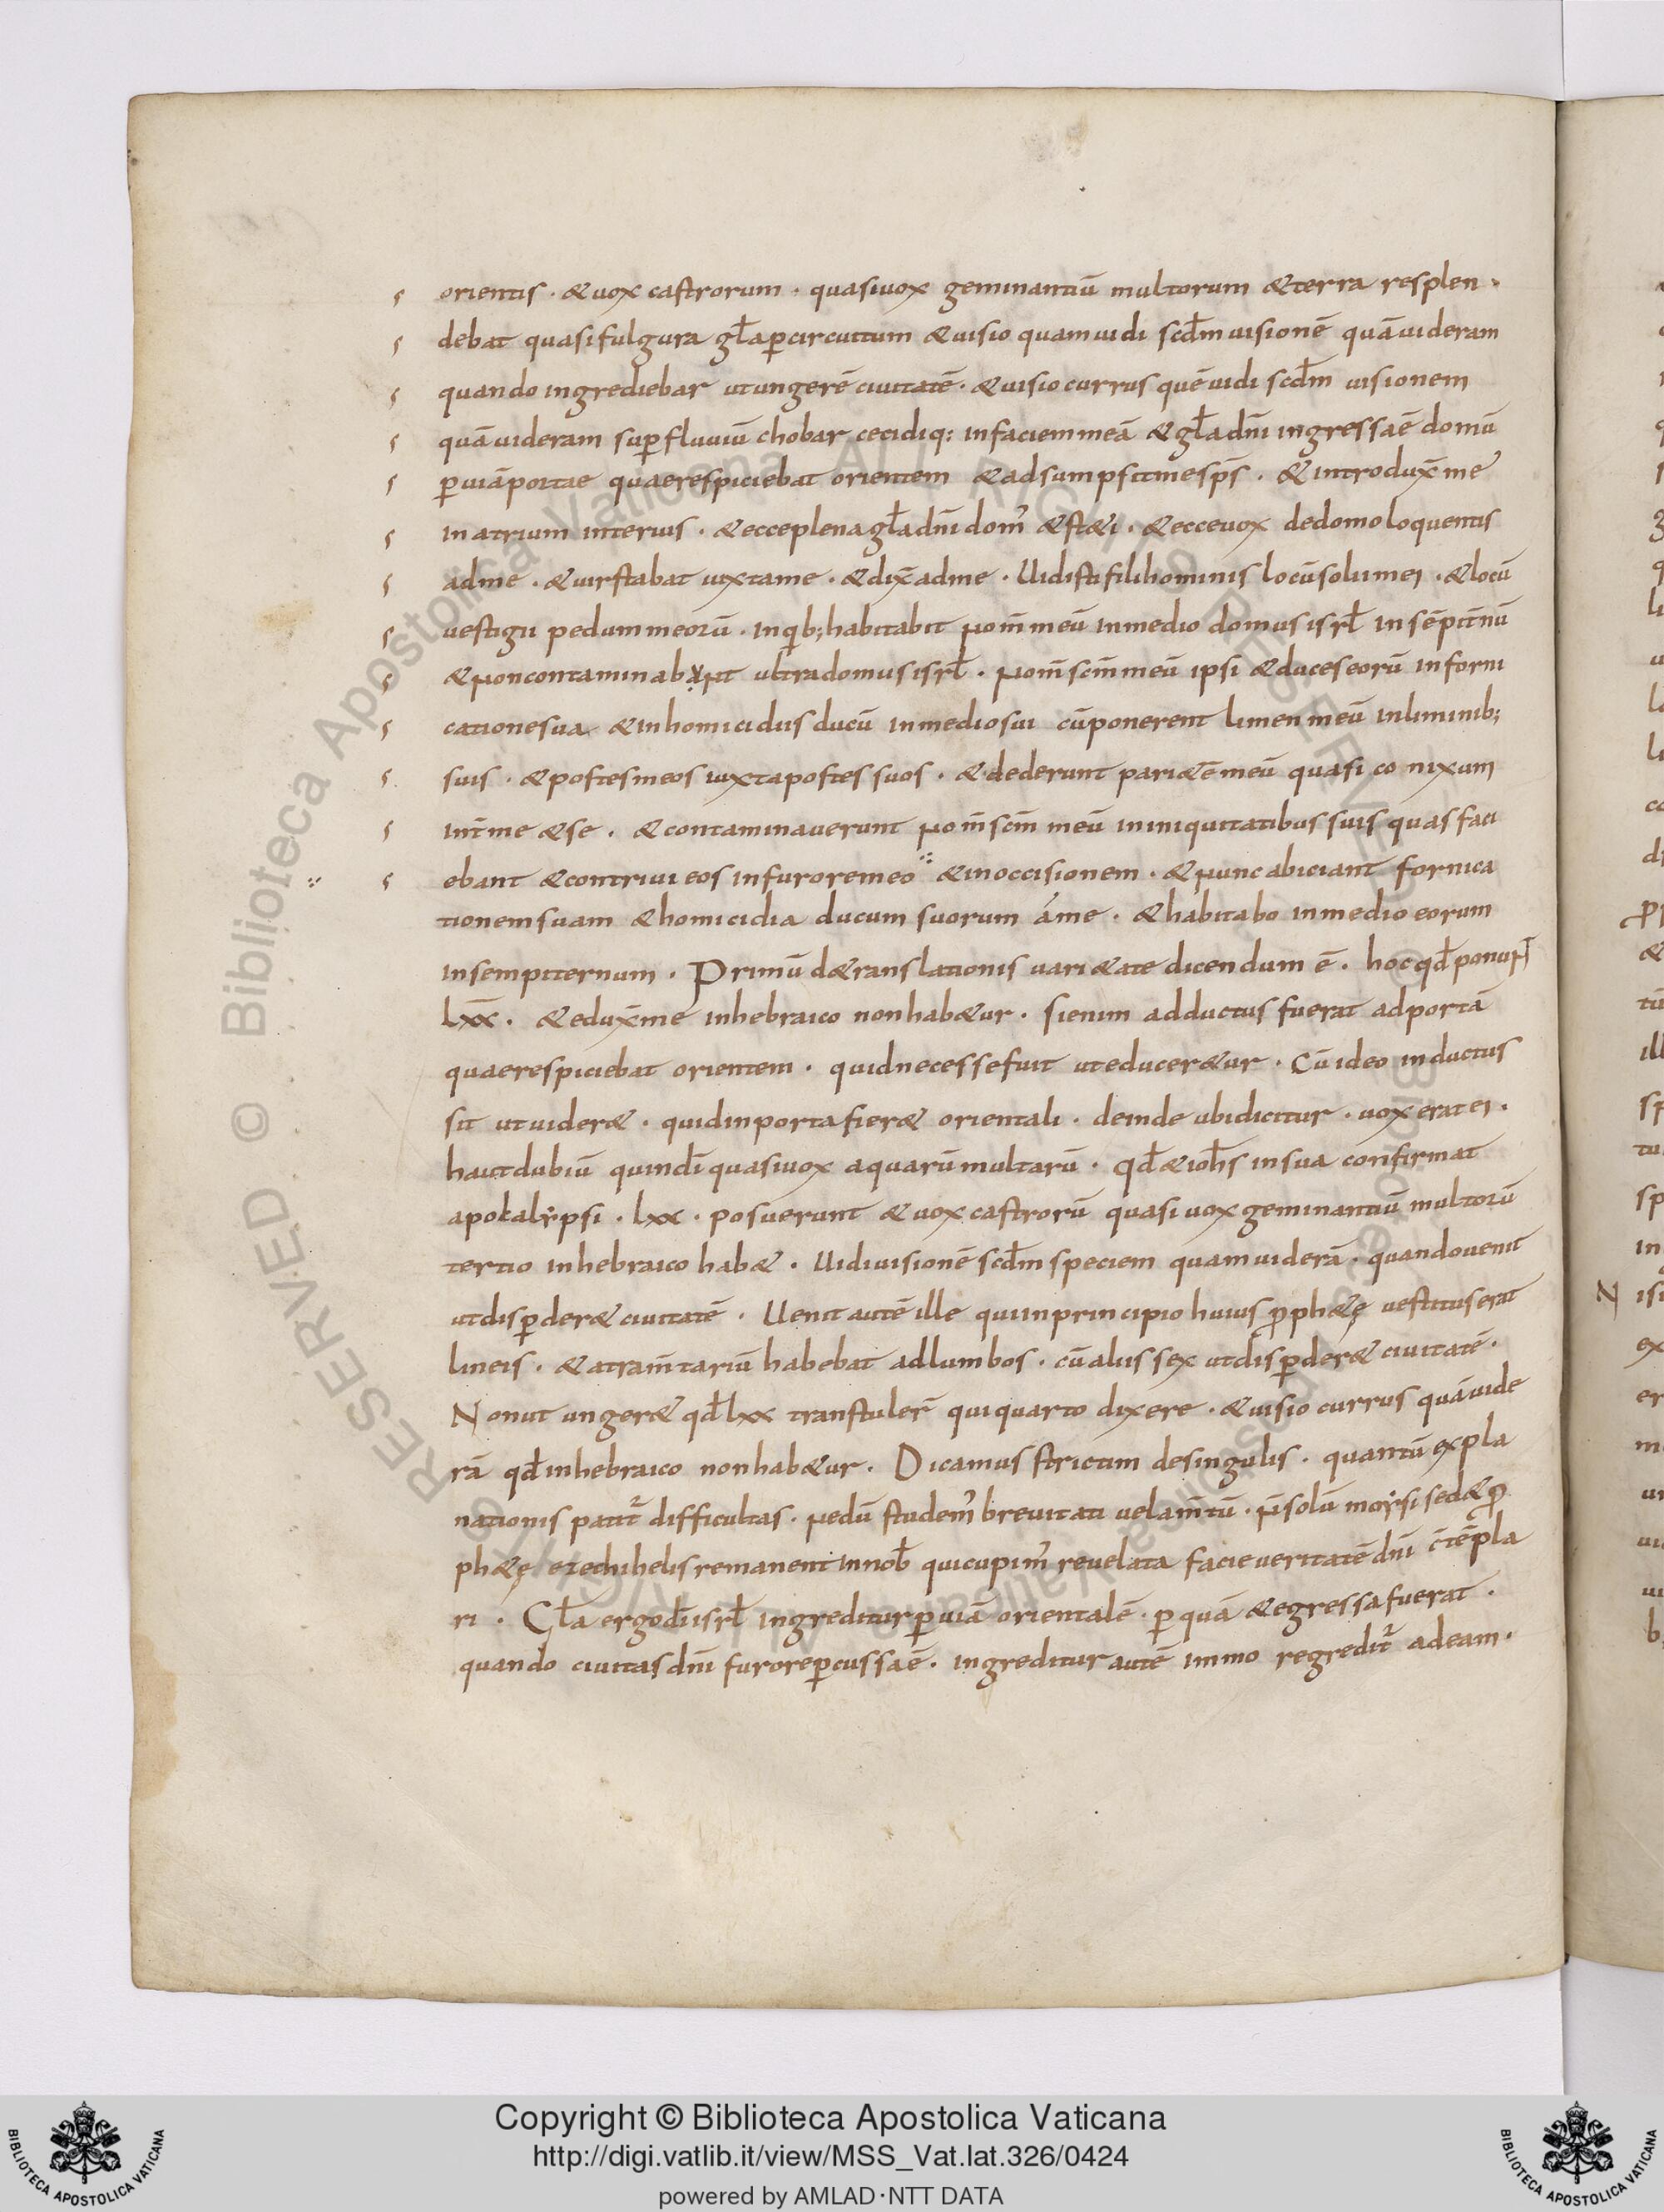 orientis · & uox castrorum · quasi uox geminantiū multorum & terra resplen ·
debat quasi fulgura gła ꝑ circuitum & uisio quam uidi scđm uisionē quā uideram
quando ingrediebar ut ungerē ciuitatē · & uisio currus quē uidi scđm uisionem
quā uideram suꝑ fluuiū chobar cecidiq: in faciem meā & gła dn̄i ingressa ē domū
ꝑ uiā portae quae respiciebat orientem & adsumpsit me sp̄s · & introdux̄ me
in atrium interius · & ecce plena gła dn̄i dom᾽ & st&i · & ecce uox de domo loquentis
ad me · & uir stabat iuxta me · & dix̄ ad me · Uidisti fili hominis locū solii mei · & locū
uestigii pedum meorū · in qib; habitabit nom̄ meū in medio domus isrł in sēpit̄nū
& non contaminabunt ultra domus isrł · nom̄ scm̄ meū ipsi & duces eorū in forni
catione sua & in homicidiis ducū in medio sui cū ponerent limen meū in liminib;
suis · & postes meos iuxta postes suos · & dederunt pari&ē meū quasi conixum
int̄ me & se · & contaminauerunt nom̄ scm̄ meū in iniquitatibus suis quas faci
ebant & contriui eos in furore meo & in occisionem · & nunc abiciant fornica
tionem suam & homicidia ducum suorum a me · & habitabo in medio eorum
in sempiternum · Primū d& ranslationis uari&ate dicendum ē · hoc qđ ponunt
lxx · & edux̄ me in hebraico non hab&ur · si enim adductus fuerat ad portā
quae respiciebat orientem · quid necesse fuit ut educer&ur · Cū ideo inductus
sit ut uider& · quid in porta fier& orientali · deinde ubi dicitur · uox erat ei ·
haut dubiū quin dī quasi uox aquarū multarū · qđ & iohs in sua confirmat
apokalypsi · lxx · posuerunt & uox castrorū quasi uox geminantiū multorū
tertio in hebraico hab& · Uidi uisionē scđm speciem quam uiderā · quando uenit
ut disꝑder& ciuitatē · Uenit autē ille qui in principio huius ꝓph&ę uestitus erat
lineis · & atram̄tariū habebat ad lumbos · cū aliis sex ut disꝑder& ciuitatē ·
Non ut unger& qđ lxx transtuler̄ qui quarto dixere · & uisio currus quā uide
rā qđ in hebraico non hab&ur · Dicamus strictim de singulis · quantū expla
nationis patit᾽ difficultas · nedū studem᾽ breuitati uelam̄tū · n̄ solū moysi sed & ꝓ
ph&ę ezechihelis remanent in nob̄ qui cupim᾽ reuelata facie ueritatē dn̄i c̄tēpla
ri · Gła ergo dī isrł ingreditur ꝑ uiā orientalē · ꝑ quā & egressa fuerat ·
quando ciuitas dn̄i furore ꝑcussa ē · ingreditur autē immo regredit᾽ ad eam ·
Copyright © Biblioteca Apostolica Vaticana
http://digi.vatlib.it/view/MSS_Vat.lat.326/0424
powered by AMLAD·NTT DATA